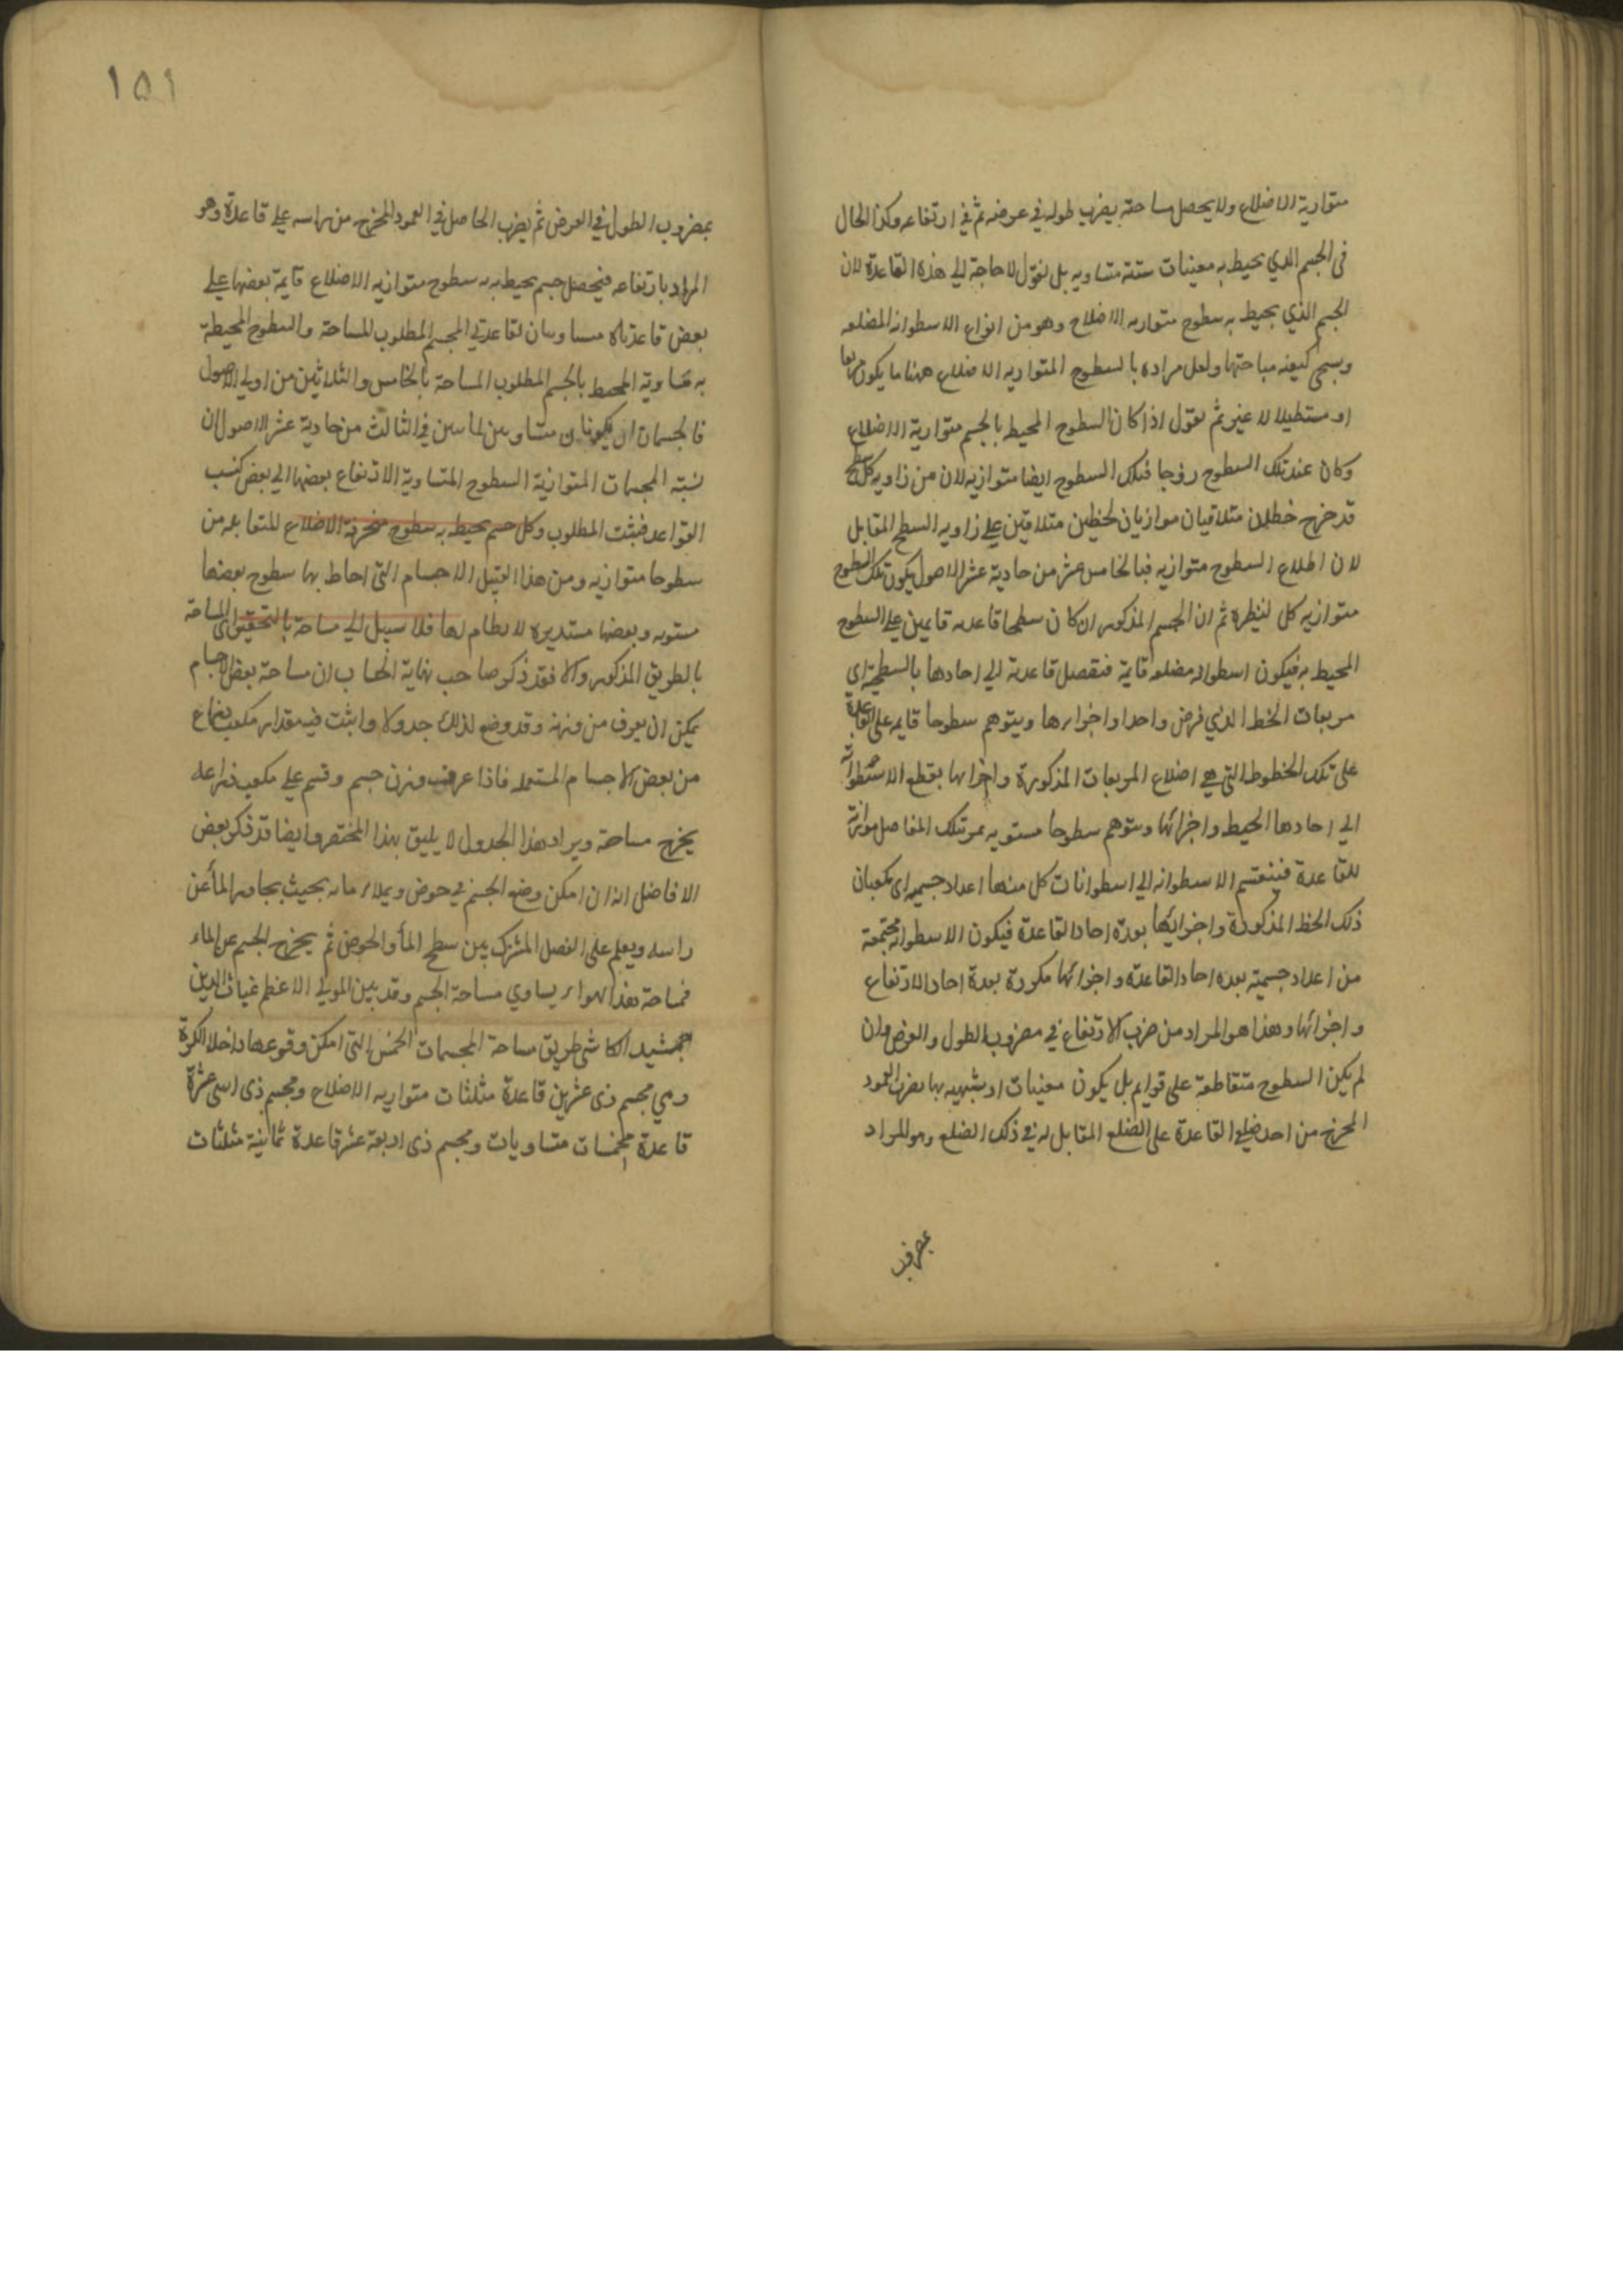 متوازية الاضلاع ولا يحصل مساحته بضرب طوله في عرضه ثم في ارتفاعه وكذا الحال
في الجسم الذي يحيط به معينات ستة متساويه بل نقول لا حاجة الي هذه القاعدة لان
الجسم الذي يحيط به سطوح متوازيه الاضلاع وهو من انواع الاسطوانه المضلعه
وسيجي كيفيه مساحتها ولعل مراده بالسطوح المتوازيه الاضلاع ههنا ما يكون مربعا
او مستطيلا لا غير ثم نقول اذا كان السطوح المحيط بالجسم متوازية الاضلاع
وكان عند تلك السطوح زوجا فتلك السطوح ايضا متوازيه لان من زاويه كل سطح
قد خرج خطان متلاقيان موازيان لخطين متلاقين علي زاويه السطح المقابل
لان اضلاع السطوح متوازيه فبالخامس عشر من حادية عشر الاصول يكون تلك السطوح
متوازيه كل لنظيره ثم ان الجسم المذكور ان كان سطحا قاعدته قايمين علي السطوح
المحيط به فيكون اسطوانه مضلعه قايمة فنفصل قاعدته الي احادها بالسطحية اي
مربعات الخط الذي فرض واحدا واجزاءها ويتوهم سطوحا قايمه علي القاعدة
علي تلك الخطوط التي هي اضلاع المربعات المذكورة واجزائها بقطع الاسطوانه
الي احادها المحيط واجزائها ويتوهم سطوحا مستويه بمر تلك المفاصل موازية
للقاعدة فينقسم الاسطوانه الي اسطوانات كل منها اعداد جسميه اي مكعبان
ذلك الخط المذكورة واجزائها بعدة احاد القاعدة فيكون الاسطوانه مجتمعة
من اعداد جسمية بعده احاد القاعدة واجزائها مكررة بعدة احاد الارتفاع
واجزائها وهذا هو المراد من ضرب الارتفاع في مضروب الطول والعرض وان
لم يكن السطوح متقاطعة علي قوايم بل يكون معينات او شبهيه بها يضرب العمود
المخرج من احد ضلعي القاعدة علي الضلع المقابل له في ذلك الضلع وهو المراد
بمضروب
١٥١
بمضروب الطول في العرض ثم يضرب الحاصل في العمود المخرج من راسه علي قاعدة وهو
المراد بارتفاعه فيحصل جسم يحيط به سطوح متوازيه الاضلاع قايمة بعضها علي
بعض قاعدتاه مساويتان لقاعدتي المجسم المطلوب للمساحة والسطوح المحيطة
به مساوية المحيط بالجسم المطلوب المساحة بالخامس والثلاثين من اولي الاصول
فالجسمان يكونان متساويين لما بين في الثالث من حادية عشر الاصول ان
نسبة المجسمات المتوازية السطوح المتساوية الارتفاع بعضها الي بعض كنسب
القواعد فثبت المطلوب وكل جسم يحيط به سطوح منحرفة الاضلاع للمتقابله من
سطوحا متوازيه ومن هذا القبيل الاجسام التي احاط بها سطوح بعضها
مستويه وبعضها مستديره لا نظام لها فلا سبيل الي مساحة بالتحقيق اي المساحة
بالطريق المذكور والا فقد ذكر صاحب نهاية الحساب ان مساحة بعض الاجسام
يمكن ان يعرف من وزنه وقد وضع لذلك جدولا واثبت فيه مقدار مكعب ذراع
من بعض الاجسام المستعمله فاذا عرف وزن جسم وقسم علي مكعب ذراعه
يخرج مساحة ويراد هذا الجدول لا يليق بهذا المختصر وايضا قد ذكر بعض
الافاضل انه ان امكن وضع الجسم في حوض ويملاء ماء بحيث يجاوز الماء عن
راسه ويعلم علي الفصل المشترك بين سطح الماء والحوض ثم يخرج الجسم عن الماء
فمساحة هذا الهواء يساوي مساحة الجسم وقد بين المولي الاعظم غياث الدين
جمشيد الكاشي طريق مساحة المجسمات الخمس التي امكن وقوعها داخل الكرة
وهي مجسم ذي عشرين قاعدة مثلثات متوازيه الاضلاع ومجسم ذي اثني عشرة
قاعدة مخمسات متساويات ومجسم ذي اربعة عشر قاعدة ثمانية مثلثات